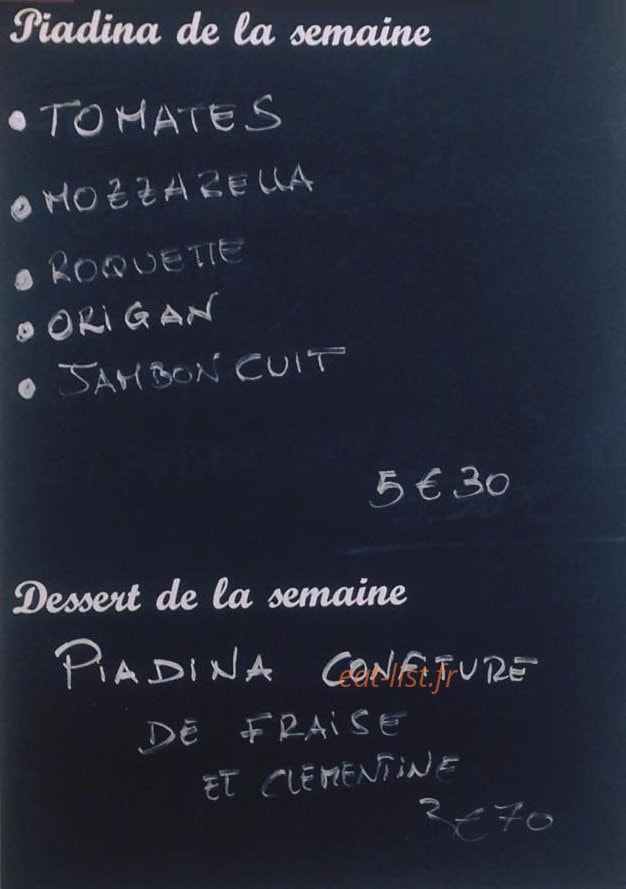 Piadina de la semaine
• TOMATES
• MOZZARELLA
• ROQUETTE
• ORIGAN
• JAMBON CUIT
5 € 30
Dessert de la semaine
PIADINA CONFITURE
eat-list.fr
DE FRAISE
ET CLEMENTINE
€ 70